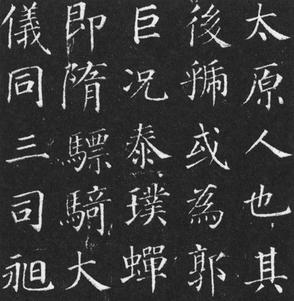 太原人也其
後虢或為郭
巨况泰璞蟬
即隋驃騎大
儀同三司昶